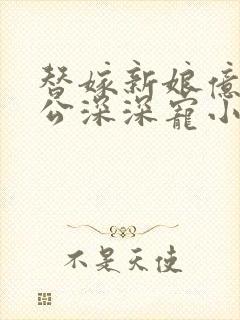 替嫁新娘億
公深深寵小
不是天使